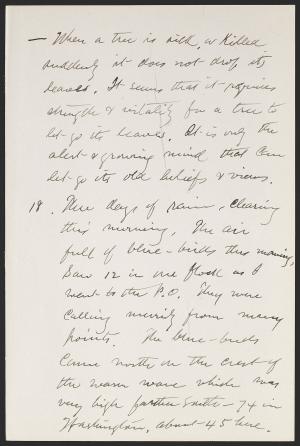 — When a tree is sick, or killed
suddenly it does not drop its
leaves. It seems that it requires
strength & vitality for a tree to
let-go its leaves. It is only the
alert & growing mind that can
let-go its old beliefs & views.
18. Three days of rain, clearing
this morning. The air
full of blue-birds this morning,
Saw 12 in one flock as I
went to the P.O. They were
calling merrily from many
points. The blue-birds
came north on the crest of
the warm wave which was
very high farther South – 74 in
Washington, about 45 here.